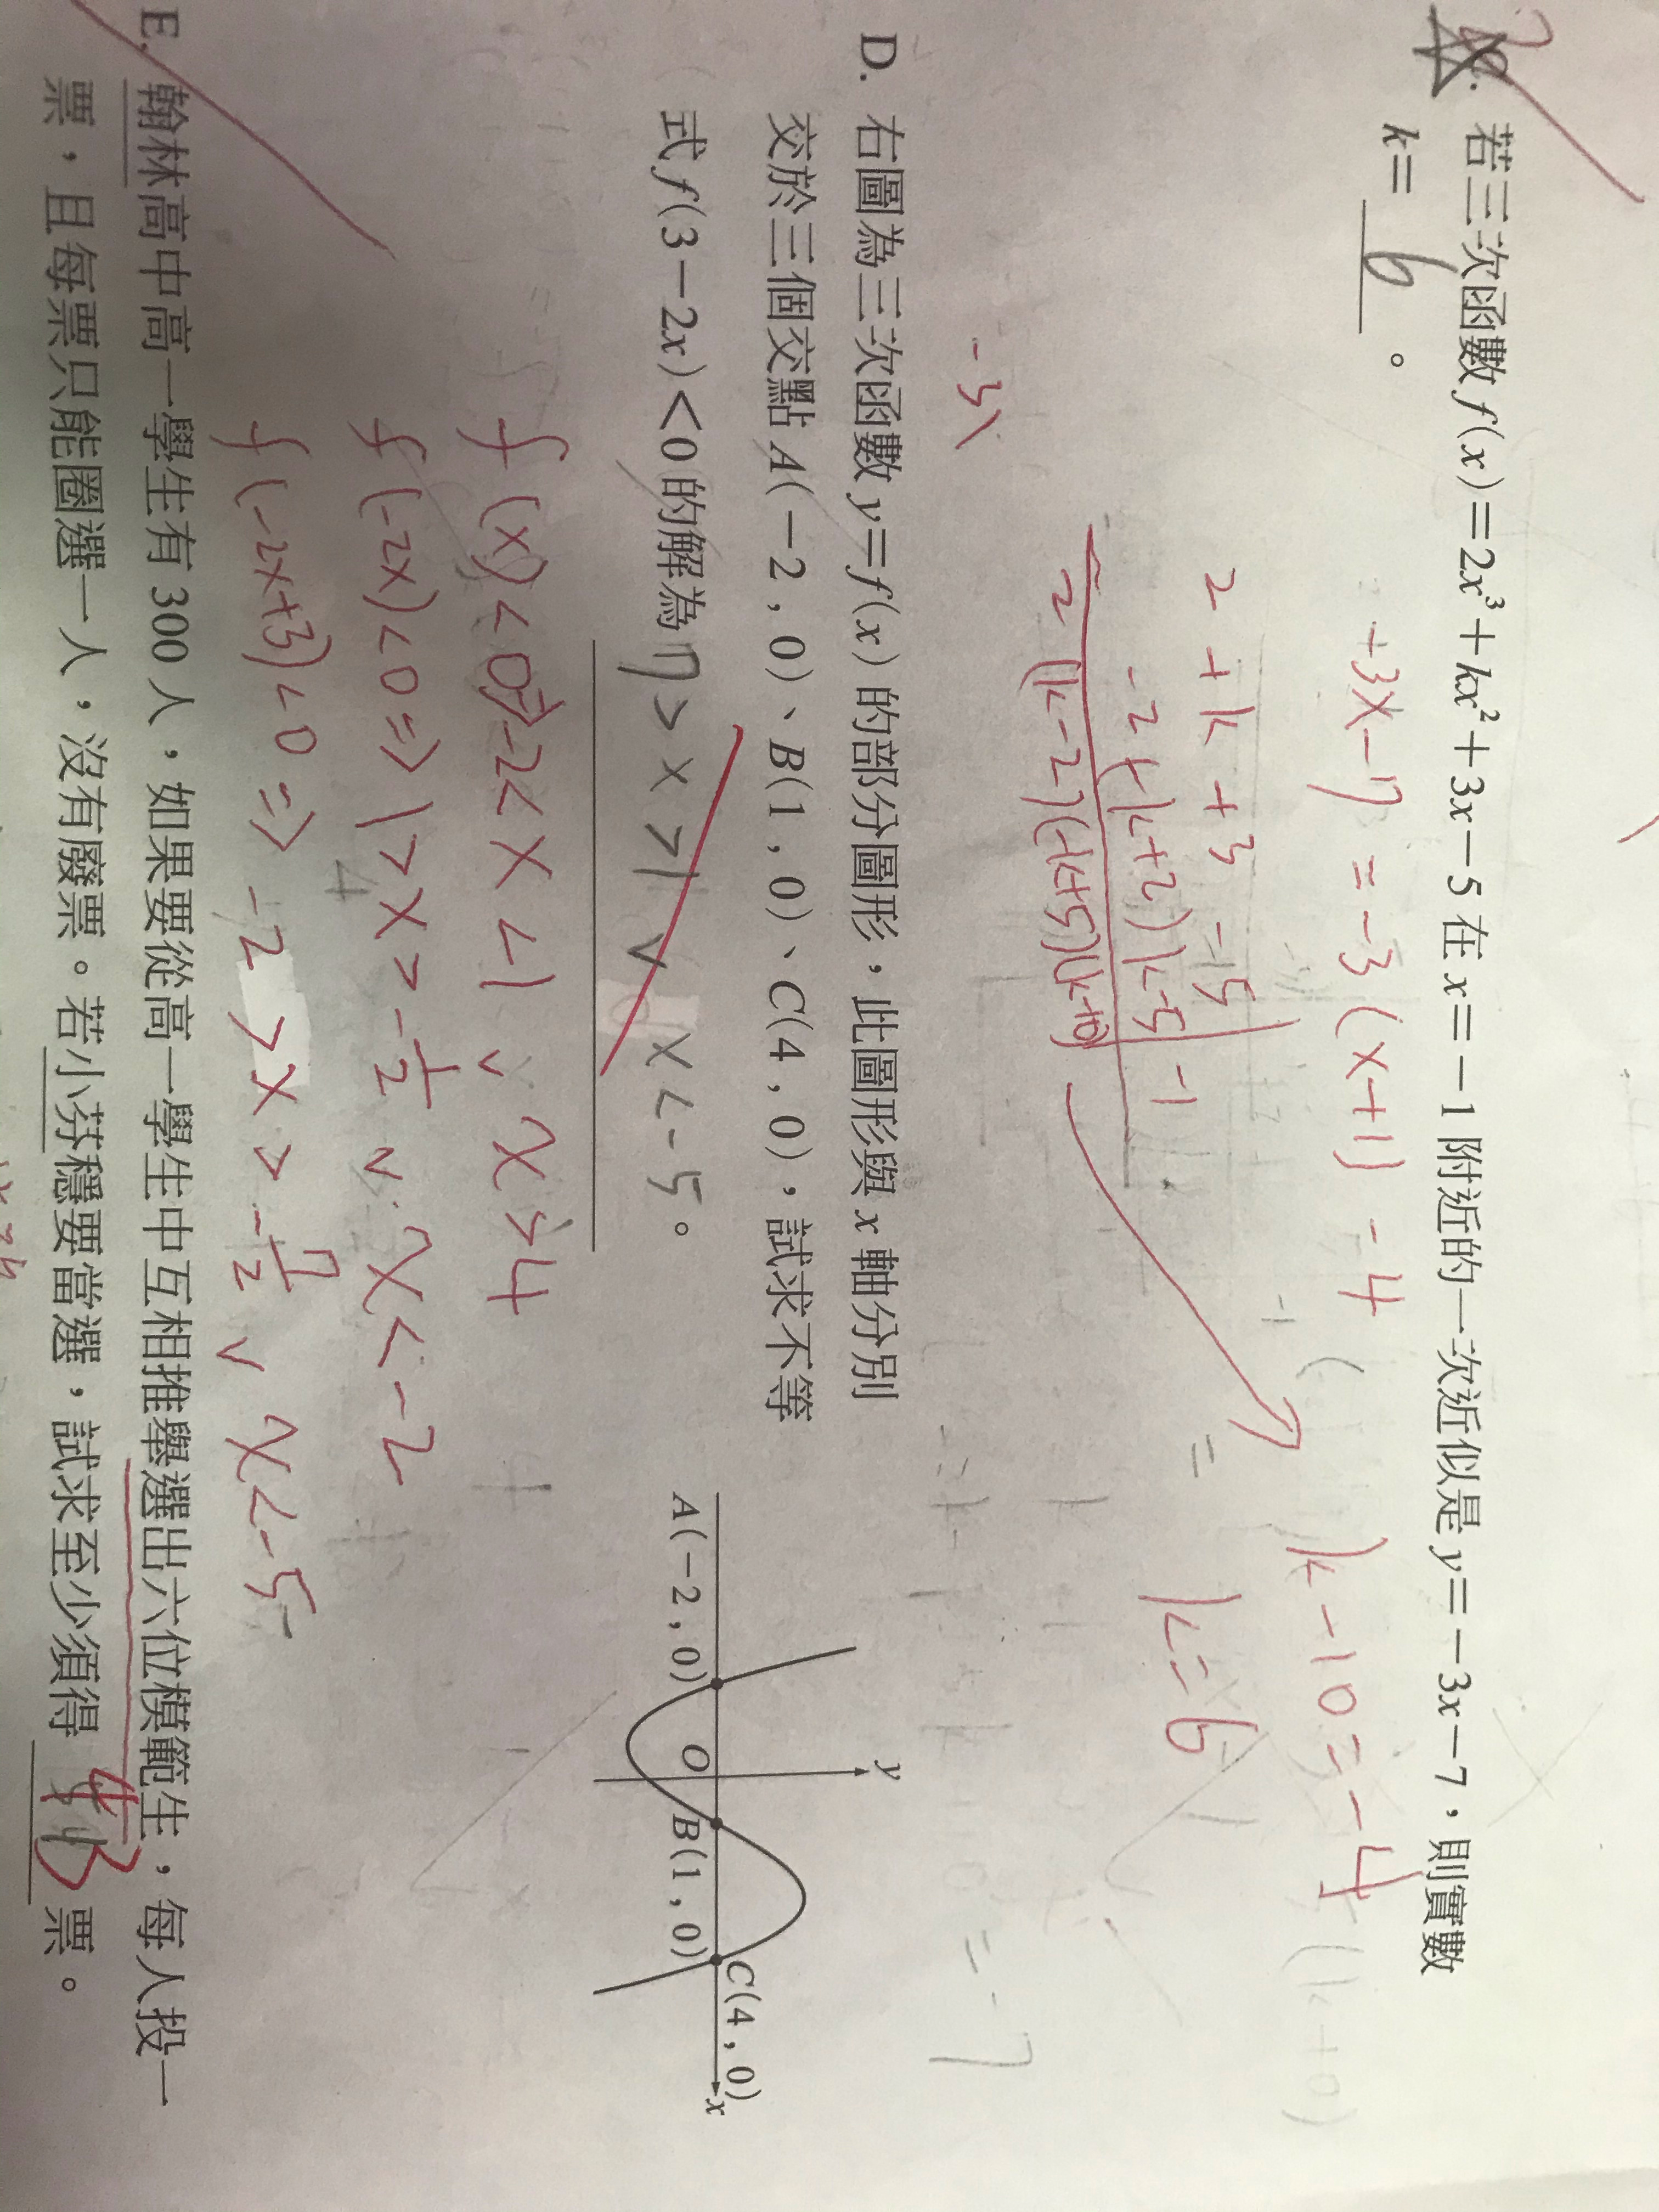 若三次函數 f(x)=2x³+kx²+3x-5 在 x=-1 附近的一次近似是 y=-3x-7，則實數
k= 6 。
+3x-7 = -3(x+1) -4
2 +k +3 -5 | -1
-2 +(-k+2) k-5
2 (k-2) (-k+5) (k-10)
k-10=-4
k=6
-3\
D. 右圖為三次函數 y=f(x) 的部分圖形，此圖形與 x 軸分別
交於三個交點 A(-2 , 0)、B(1 , 0)、C(4 , 0)，試求不等
式 f(3-2x)<0 的解為 7 > x > 1 ∨ x<-5 。
y
A(-2 , 0) O B(1 , 0) C(4 , 0) x
f(x)<0 ⇒ -2< x <1 ∨ x>4
f(-2x)<0 ⇒ 1>x>-1/2 ∨ x<-2
f(-2x+3)<0 ⇒ -2 >x > -7/2 ∨ x<-5
E. 翰林高中高一學生有 300 人，如果要從高一學生中互相推舉選出六位模範生，每人投一
票，且每票只能圈選一人，沒有廢票。若小芬穩要當選，試求至少須得 43 票。